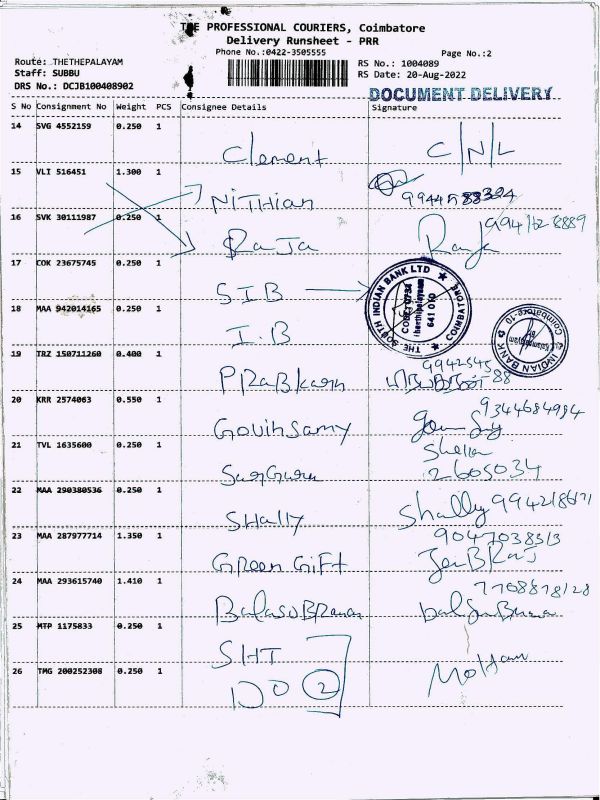 THE PROFESSIONAL COURIERS, Coimbatore
Delivery Runsheet - PRR
Phone No.:0422-3505555
Page No.:2
Route: THETHEPALAYAM
RS No.: 1004089
Staff: SUBBU
RS Date: 20-Aug-2022
DRS No.: DCJB100408902
DOCUMENT DELIVERY
S No Consignment No Weight PCS Consignee Details Signature
14 SVG 4552159 0.250 1
Clement C/N/L
15 VLI 516451 1.300 1
NiTHian
16 SVK 30111987 0.250 1
RaJa Raja
17 COK 23675745 0.250 1
SIB
THE SOUTH INDIAN BANK LTD COIMBATORE
641 010
18 MAA 942014165 0.250 1
I.B
INDIAN BANK
Coimbatore-10
19 TRZ 150711260 0.400 1
PRaBkaran
20 KRR 2574063 0.550 1
9344684994
GovinSamy
21 TVL 1635600 0.250 1
SurGuru 2605034
22 MAA 290380536 0.250 1
SHally Shally
23 MAA 287977714 1.350 1
Green GiFt
24 MAA 293615740 1.410 1
7708878128
BalasuBraman
25 MTP 1175833 0.250 1
SHT
26 TMG 200252308 0.250 1
DO 2 Mohan